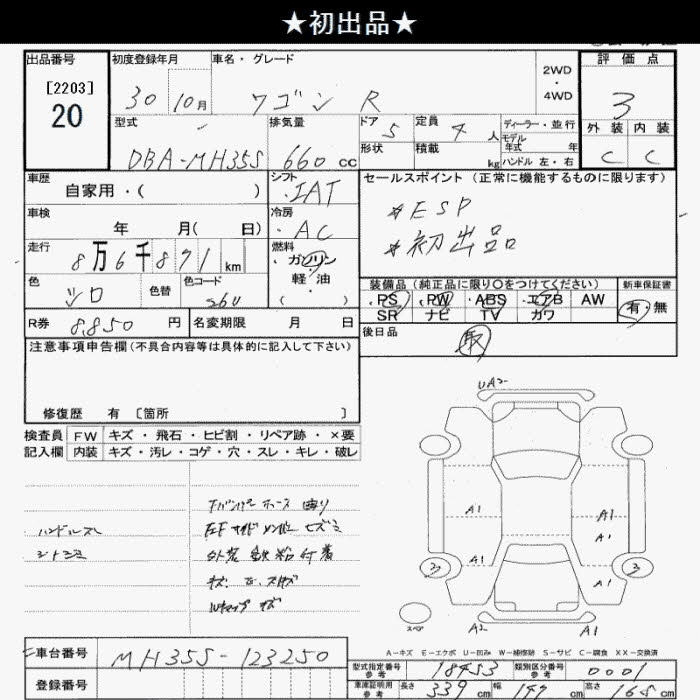 ★初出品★
出品番号 初度登録年月 車名・グレード 2WD・4WD 評価点
[2203]
20
30 10月 ワゴン R
3
型式 排気量 ドア 5 定員 4人 ディーラー・並行
モデル年式 年
外装 内装
DBA-MH35S 660cc 形状 積載 kg ハンドル 左・右
C C
車歴 シフト セールスポイント (正常に機能するものに限ります)
自家用・( ) IAT
*ESP
車検 冷房
年 月( 日) AC
*初出品
走行 燃料
8万6千871km ガソリン・軽油・( )
色 色替 色コード
シロ 26U
装備品 (純正品に限り○をつけてください) 新車保証書
PS PW ABS エアB AW 有・無
SR ナビ TV カワ
R券 8,850円 名変期限 月 日
後日品
取
注意事項申告欄(不具合内容等は具体的に記入して下さい)
修復歴 有 〔箇所 〕
検査員記入欄 FW キズ・飛石・ヒビ割・リペア跡・×要
内装 キズ・汚レ・コゲ・穴・スレ・キレ・破レ
UA2
Fバンパー ホース 曲り
ハンドルスレ
左F サイドメンバー ヒズミ
シートシミ
外装 鉄粉付着
キズ
Wキャップ キズ
A1 A1
A1
A1 A1
3 3
スペア
A2 A1
A-キズ E-エクボ U-凹み W-補修跡 S-サビ C-腐食 XX-交換済
車台番号 MH35S-123250
登録番号
型式指定番号 参考 18453 類別区分番号 参考 0001
車庫証明用 参考 長さ 339cm 幅 147cm 高さ 165cm